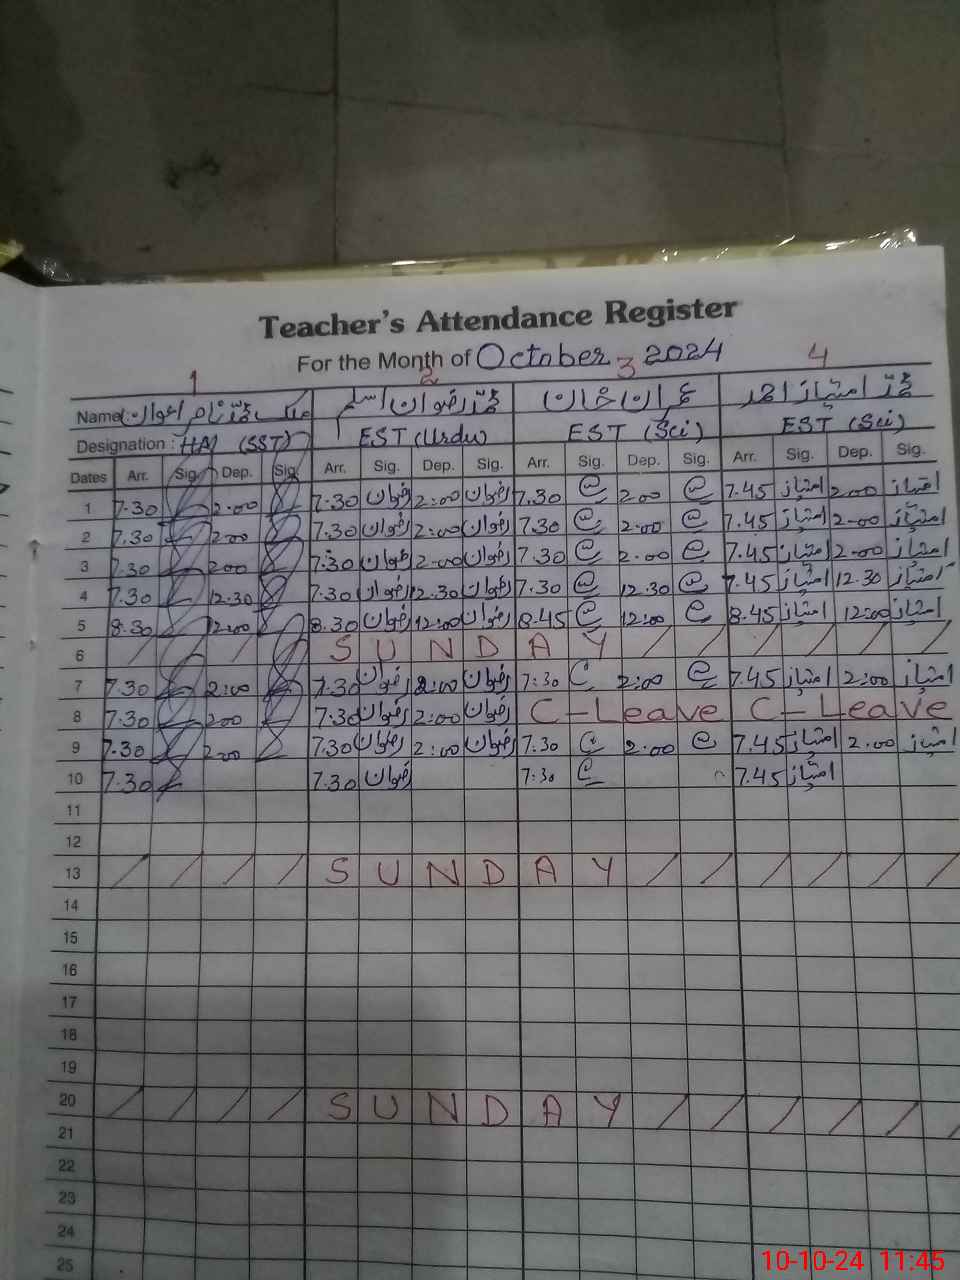 Teacher's Attendance Register
For the Month of October 2024
1 2 3 4
Name: ملک محمد اعوان محمد رضوان اسلم عمران خان محمد امتیاز احمد
Designation: HM (SST) EST (Urdu) EST (Sci) EST (Sci)
Dates Arr. Sig. Dep. Sig. Arr. Sig. Dep. Sig. Arr. Sig. Dep. Sig. Arr. Sig. Dep. Sig.
1 7.30 2.00 7.30 رضوان 2:00 رضوان 7.30 2.00 7.45 امتیاز 2.00 امتیاز
2 7.30 2.00 7.30 رضوان 2:00 رضوان 7.30 2.00 7.45 امتیاز 2.00 امتیاز
3 7.30 2.00 7.30 رضوان 2:00 رضوان 7.30 2.00 7.45 امتیاز 2.00 امتیاز
4 7.30 12.30 7.30 رضوان 12.30 رضوان 7.30 12.30 7.45 امتیاز 12.30 امتیاز
5 8.30 12:00 8.30 رضوان 12:00 رضوان 8.45 12:00 8.45 امتیاز 12:00 امتیاز
6 / / / / S U N D A Y / / / / / /
7 7.30 2:00 7.30 رضوان 2:00 رضوان 7:30 2:00 7.45 امتیاز 2:00 امتیاز
8 7.30 2.00 7.30 رضوان 2:00 رضوان C-Leave C-Leave
9 7.30 2.00 7.30 رضوان 2:00 رضوان 7:30 2.00 7.45 امتیاز 2.00 امتیاز
10 7.30 7.30 رضوان 7:30 7.45 امتیاز
11
12
13 / / / / S U N D A Y / / / / / /
14
15
16
17
18
19
20 / / / / S U N D A Y / / / / / /
21
22
23
24
25
10-10-24 11:45